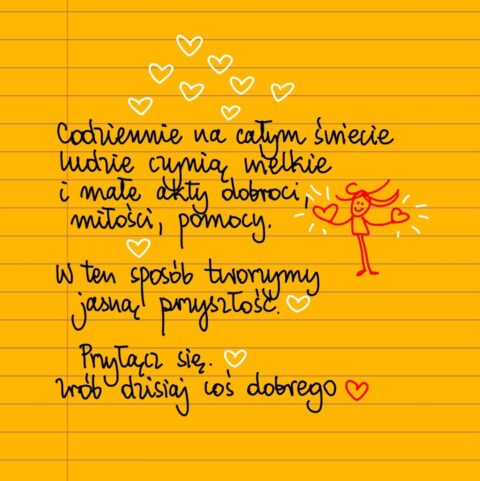 Codziennie na całym świecie
ludzie czynią wielkie
i małe akty dobroci,
miłości, pomocy.
W ten sposób tworzymy
jasną przyszłość.
Przyłącz się.
zrób dzisiaj coś dobrego